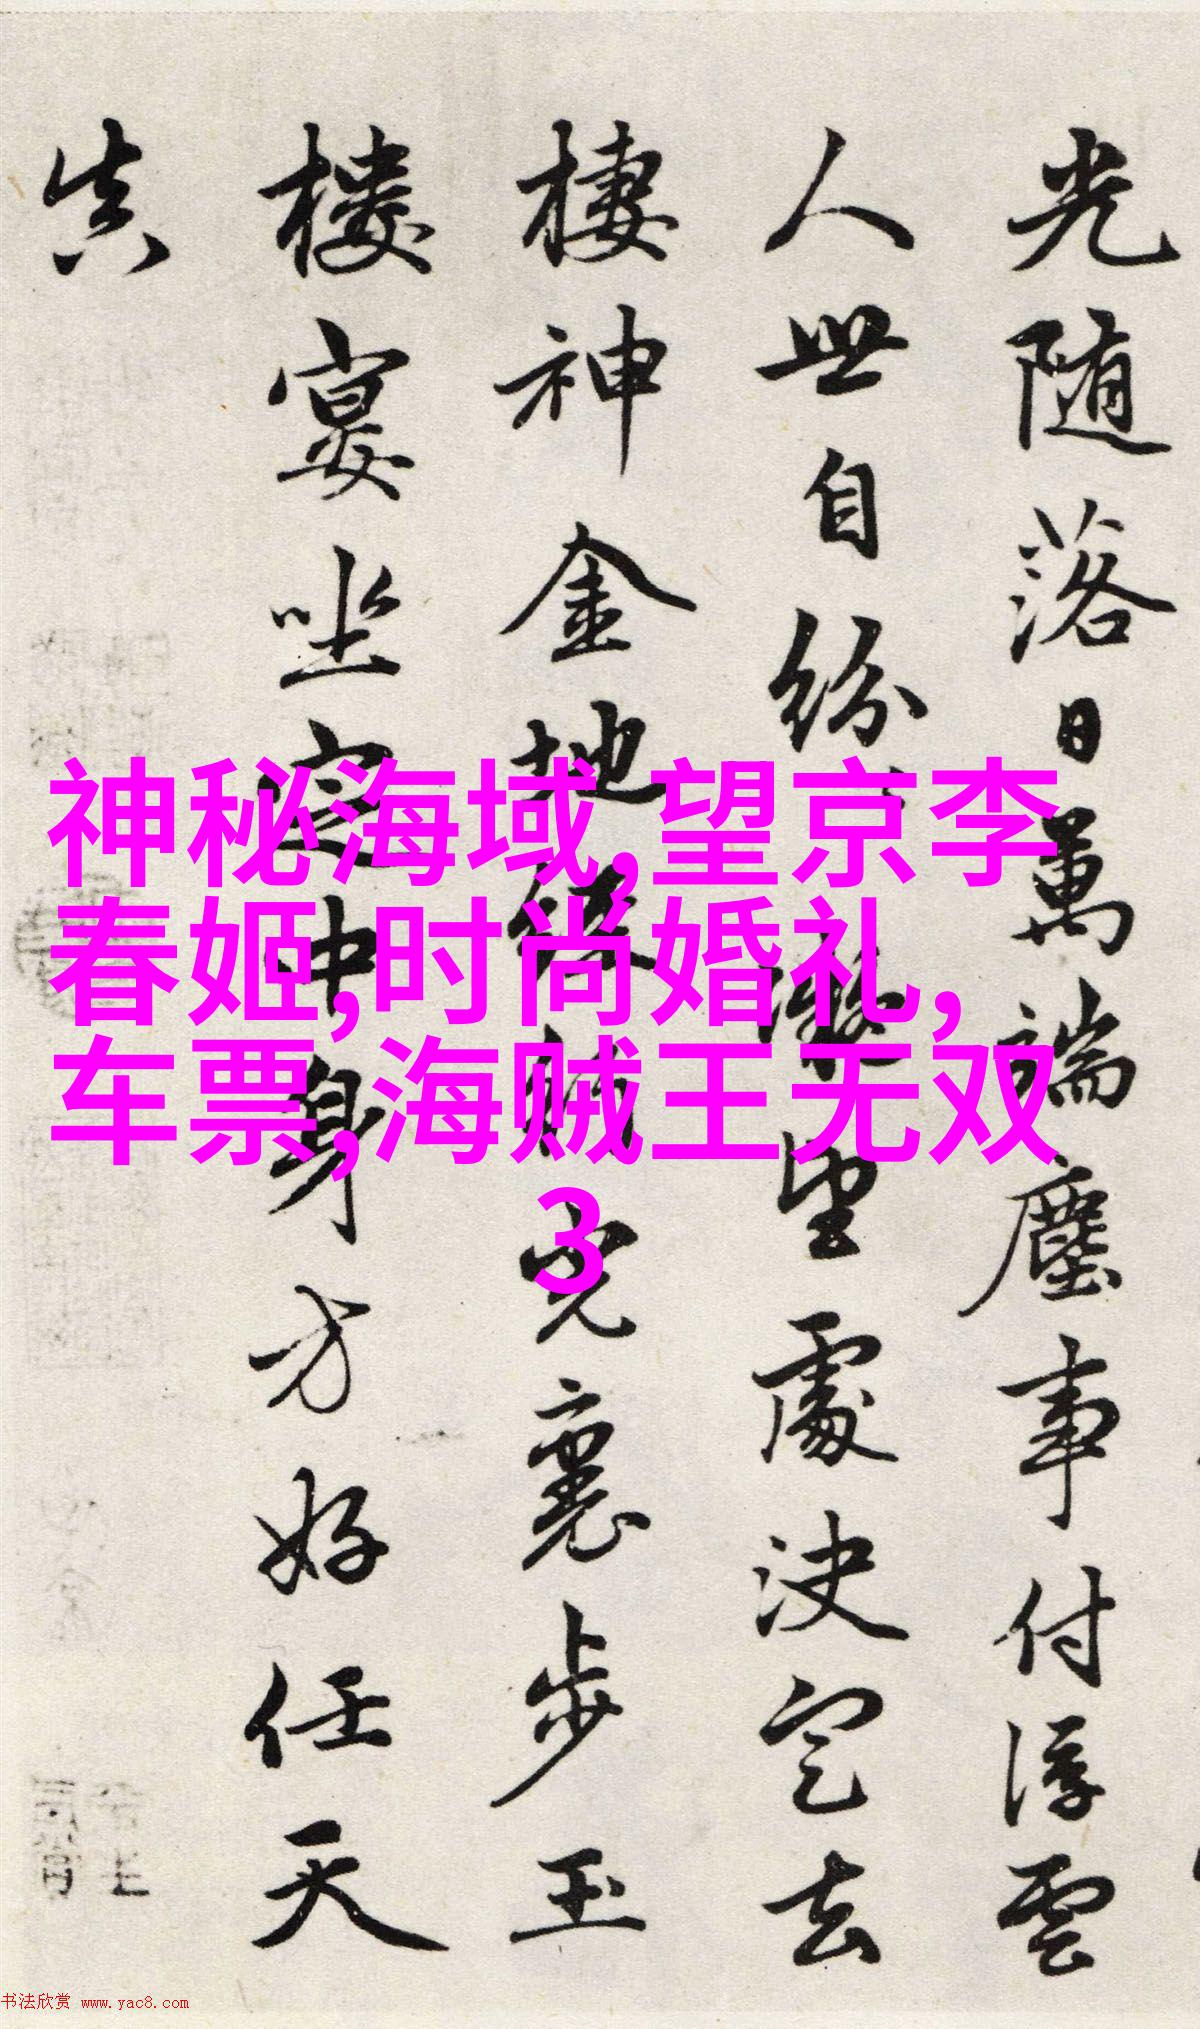 光随落日萬端塵事付浮雲
人世自紛望處決定去
棲神金地光裏步玉
樓宴坐定中身方好任天
真
神秘海域,望京李
春姬,时尚婚礼,
车票,海贼王无双
3
书法欣赏 www.yac8.com